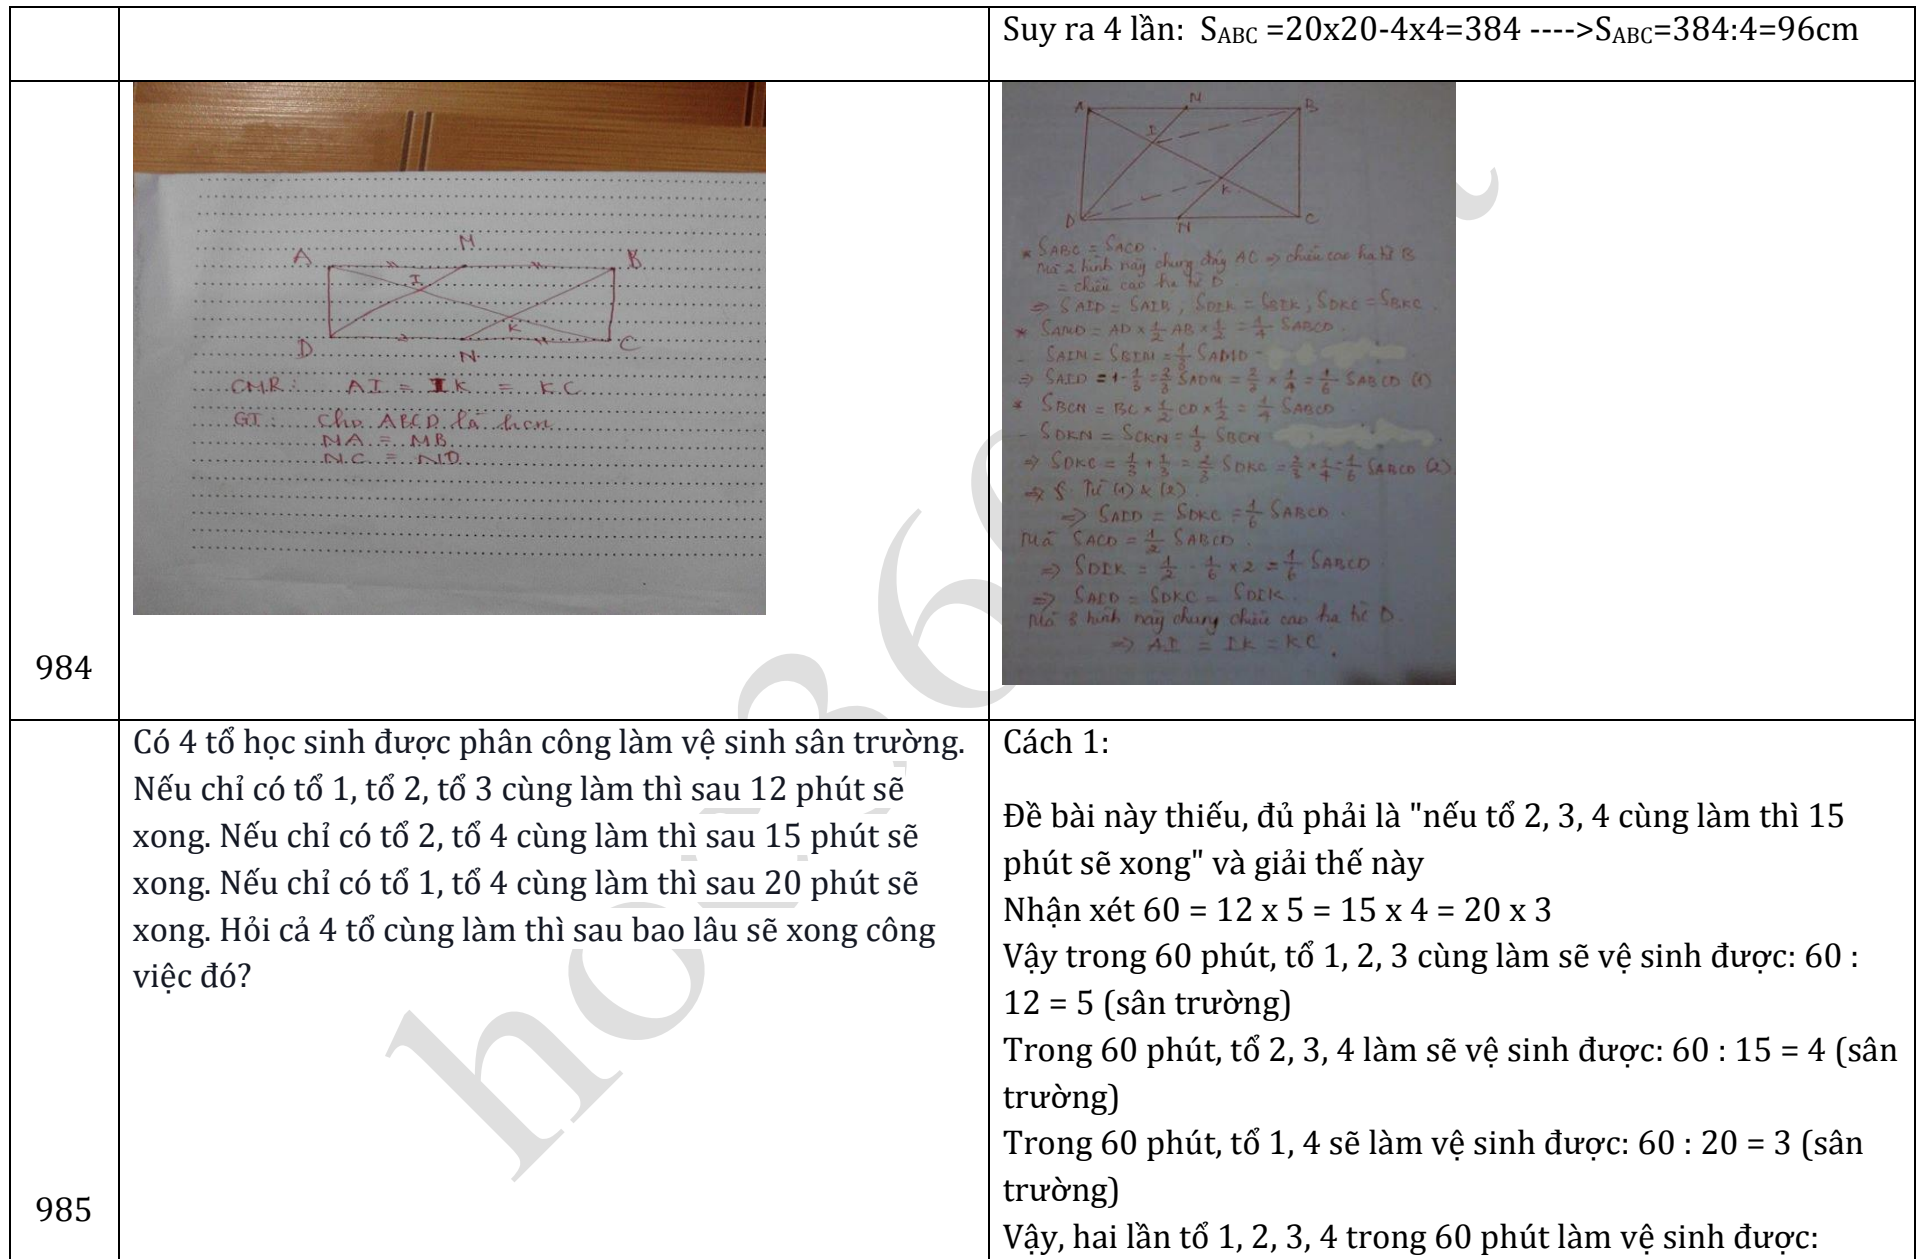 Suy ra 4 lần: S_ABC =20x20-4x4=384 ---->S_ABC=384:4=96cm
984
A M B
I
K
D N C
CMR: AI = IK = KC
GT: Cho ABCD là hcn
MA = MB
NC = ND
A N B
I
K
D N C
* SABC = SACD.
Mà 2 hình này chung đáy AC => chiều cao hạ từ B
= chiều cao hạ từ D
=> SAID = SAIB, SDIK = SBIK, SDKC = SBKC.
* SAMD = AD x 1/2 AB x 1/2 = 1/4 SABCD.
- SAIM = SBIM = 1/3 SAMD
=> SAID = 1 - 1/3 = 2/3 SADM = 2/3 x 1/4 = 1/6 SABCD (1)
* SBCN = BC x 1/2 CD x 1/2 = 1/4 SABCD
- SDKN = SCKN = 1/3 SBCN
=> SDKC = 1/3 + 1/3 = 2/3 SDKC = 2/3 x 1/4 = 1/6 SABCD (2)
=> S. Từ (1) & (2).
=> SAID = SDKC = 1/6 SABCD.
Mà SACD = 1/2 SABCD.
=> SDIK = 1/2 - 1/6 x 2 = 1/6 SABCD
=> SAID = SDKC = SDIK.
Mà 3 hình này chung chiều cao hạ từ D.
=> AI = IK = KC.
985
Có 4 tổ học sinh được phân công làm vệ sinh sân trường.
Nếu chỉ có tổ 1, tổ 2, tổ 3 cùng làm thì sau 12 phút sẽ
xong. Nếu chỉ có tổ 2, tổ 4 cùng làm thì sau 15 phút sẽ
xong. Nếu chỉ có tổ 1, tổ 4 cùng làm thì sau 20 phút sẽ
xong. Hỏi cả 4 tổ cùng làm thì sau bao lâu sẽ xong công
việc đó?
Cách 1:
Đề bài này thiếu, đủ phải là "nếu tổ 2, 3, 4 cùng làm thì 15
phút sẽ xong" và giải thế này
Nhận xét 60 = 12 x 5 = 15 x 4 = 20 x 3
Vậy trong 60 phút, tổ 1, 2, 3 cùng làm sẽ vệ sinh được: 60 :
12 = 5 (sân trường)
Trong 60 phút, tổ 2, 3, 4 làm sẽ vệ sinh được: 60 : 15 = 4 (sân
trường)
Trong 60 phút, tổ 1, 4 sẽ làm vệ sinh được: 60 : 20 = 3 (sân
trường)
Vậy, hai lần tổ 1, 2, 3, 4 trong 60 phút làm vệ sinh được: